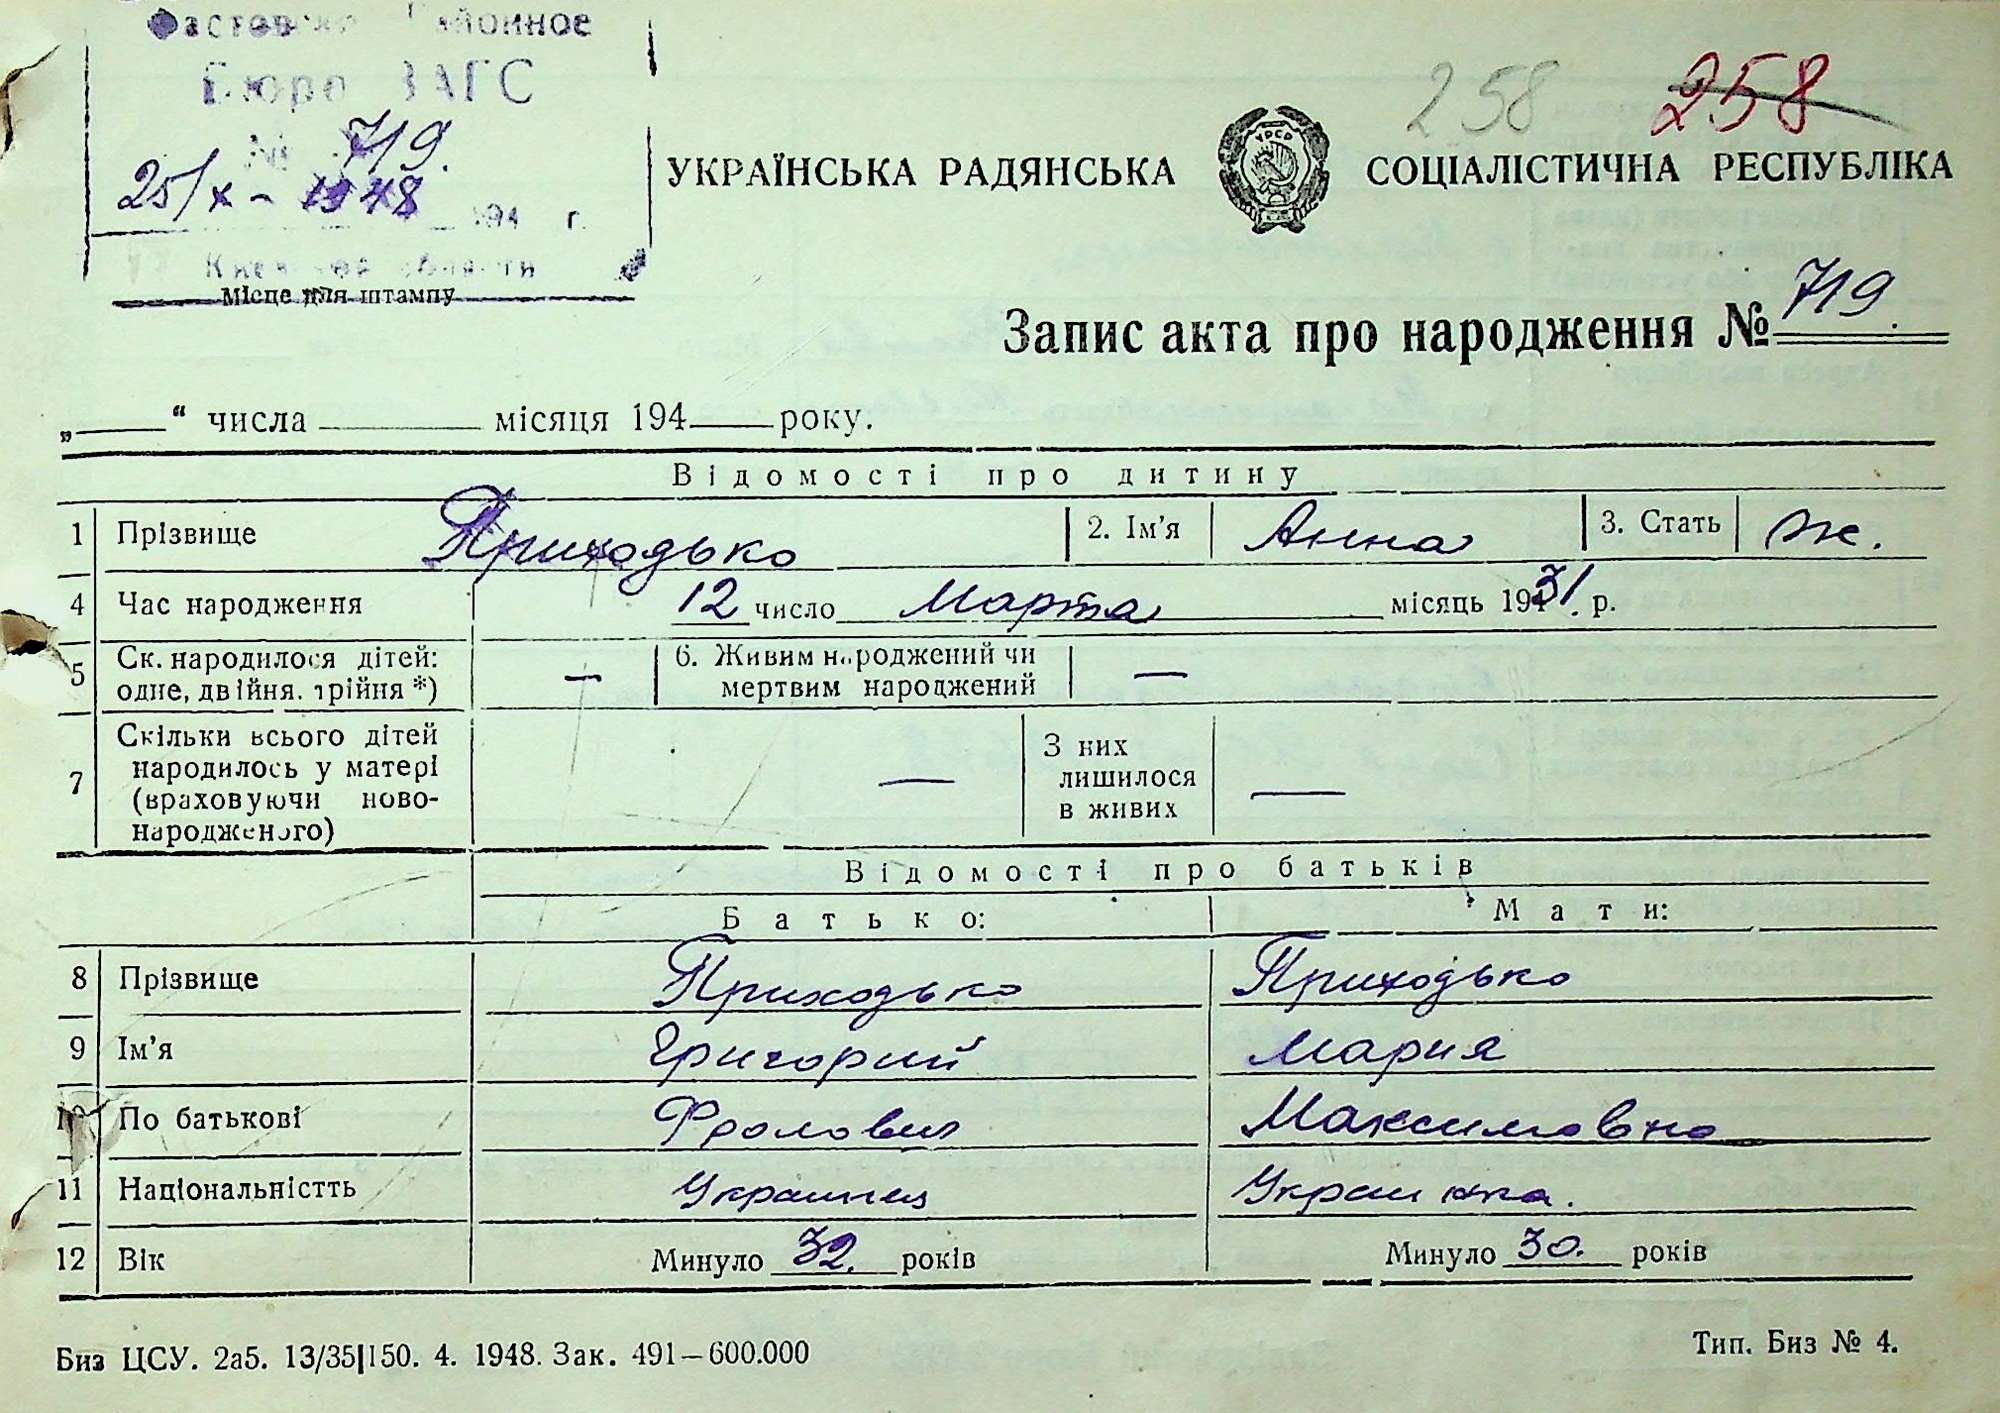 Фастовское Районное
Бюро ЗАГС
№ 719.
25/X - 1948 194 г.
Киевской области
Місце для штампу
258 258
УКРАЇНСЬКА РАДЯНСЬКА УРСР СОЦІАЛІСТИЧНА РЕСПУБЛІКА
Запис акта про народження № 719.
„ “ числа місяця 194 року.
Відомості про дитину
1 Прізвище Приходько 2. Ім'я Анна 3. Стать ж.
4 Час народження 12 число Марта місяць 1931. р.
5 Ск. народилося дітей: одне, двійня, трійня *) — 6. Живим народжений чи мертвим народжений —
7 Скільки всього дітей народилось у матері (враховуючи ново-народженого) — З них лишилося в живих —
Відомості про батьків
Батько: Мати:
8 Прізвище Приходько Приходько
9 Ім'я Григорий Мария
10 По батькові Фролович Максимовна
11 Національністть Украинец Украинка.
12 Вік Минуло 32. років Минуло 30. років
Биз ЦСУ. 2а5. 13/35|150. 4. 1948. Зак. 491—600.000 Тип. Биз № 4.